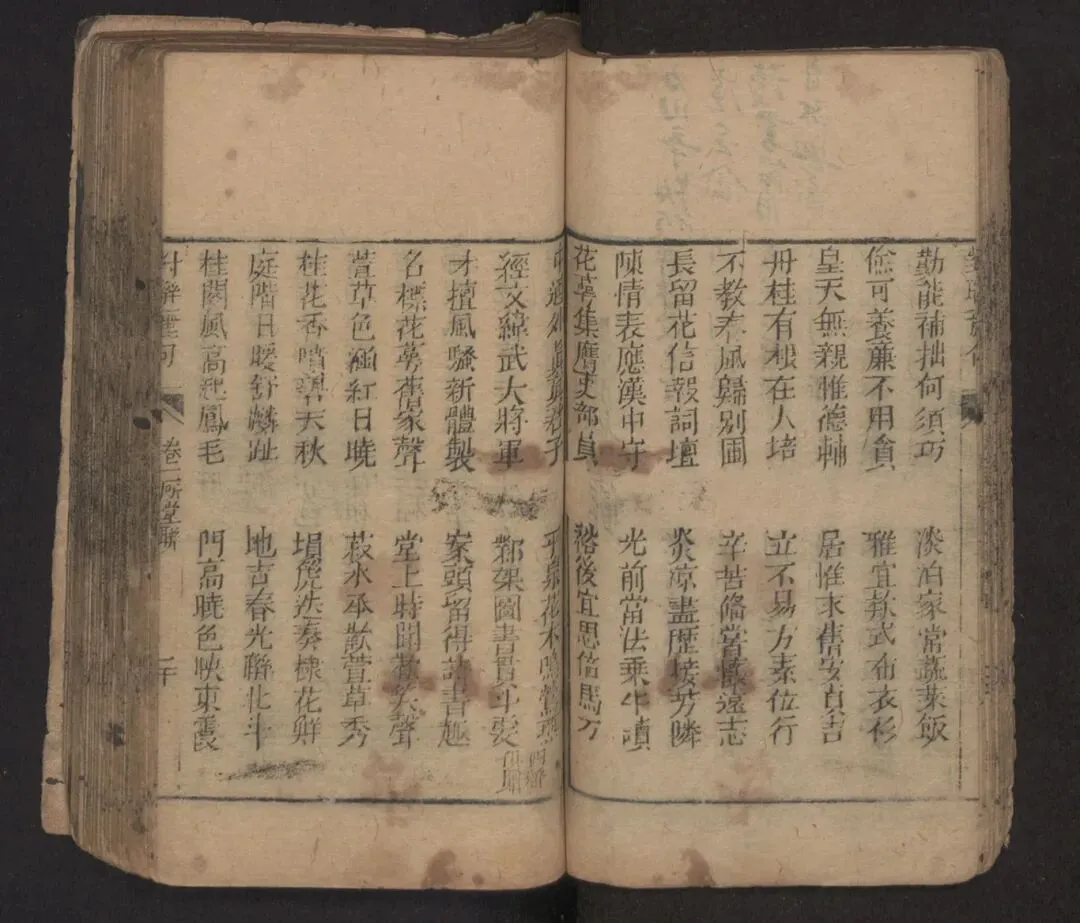 勤能補拙何須巧 淡泊家常蔬菜飯
儉可養廉不用貪 雅宜款式布衣衫
皇天無親惟德輔 居惟末售安貞吉
丹桂有根在人培 立不易方素位行
不教春風歸別圃 辛苦備嘗懷遠志
長留花信報詞壇 炎涼盡歷接芳隣
陳情表應漢中守 光前當法乘牛
花萼集膺史部員 後宜思倚馬方
平泉花木
經文緯武大將軍 鄴架圖書貫斗
才擅風騷新體製 案頭留得詩書趣
名標花萼舊家聲 堂上時聞歡笑聲
萱草色涵紅日曉 菽水承歡萱草秀
桂花香噴碧天秋 塤篪迭奏棣花鮮
庭階日暖舒麟趾 地吉春光聯北斗
桂闕風高起鳳毛 門高曉色映東震
卷二 堂聯
二十